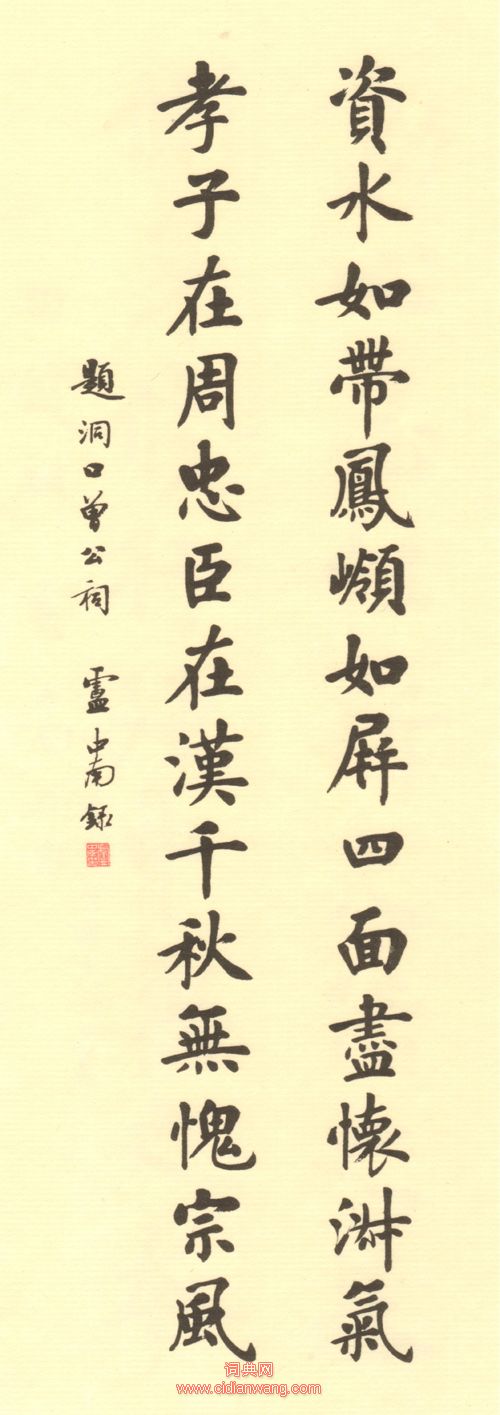 資水如帶鳳嶺如屏四面盡懷淑氣
孝子在周忠臣在漢千秋無愧宗風
題洞口曾公祠 盧中南錄
词典网
www.cidianwang.com